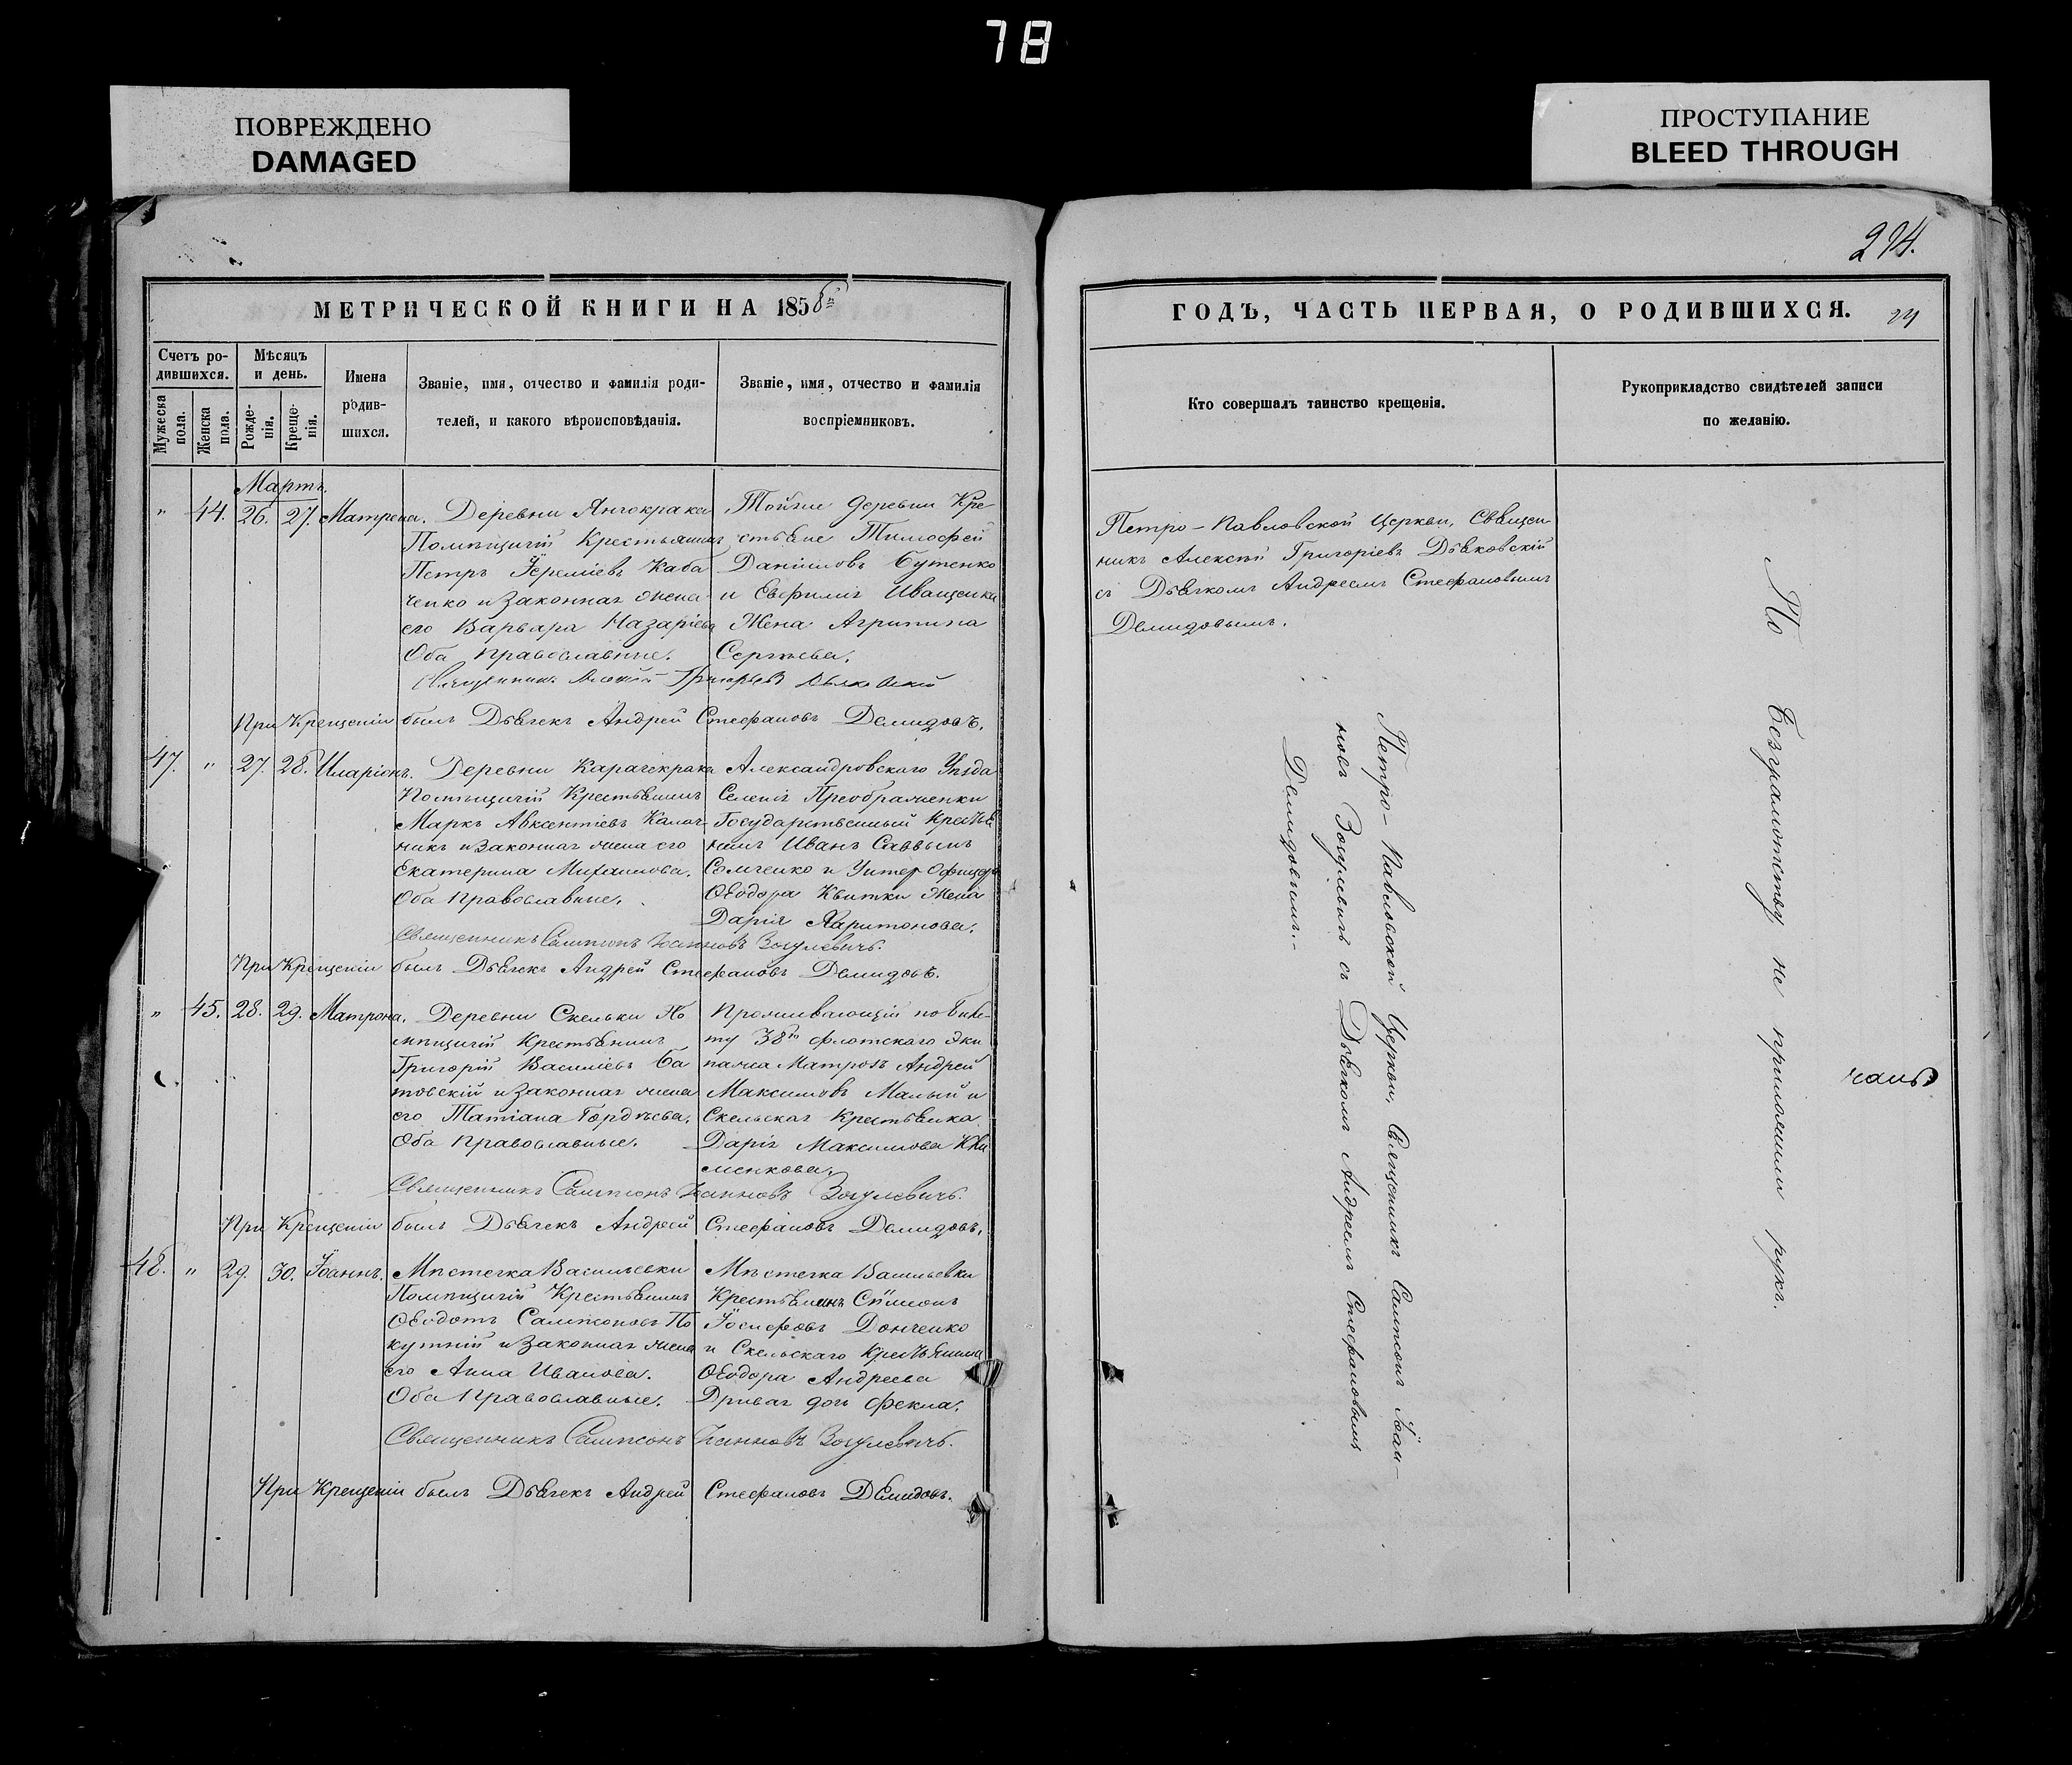 78
ПОВРЕЖДЕНО
DAMAGED
ПРОСТУПАНИЕ
BLEED THROUGH
294.
МЕТРИЧЕСКОЙ КНИГИ НА 1858й
Счетъ ро-
дившихся.
Мужеска пола.
Женска пола.
Мѣсяцъ
и день.
Рожде-
нія.
Креще-
нія.
Имена
родив-
шихся.
Званіе, имя, отчество и фамилія роди-
телей, и какого вѣроисповѣданія.
Званіе, имя, отчество и фамилія
воспріемниковъ.
Мартъ.
" 44. 26. 27. Матрена.
Деревни Янчокрака
Помѣщичій Крестьянинъ
Петръ Іереміевъ Каба
ченко и Законная жена
его Варвара Назаріева
Оба Православные.
Тойже деревни Кре-
стьяне Тимофей
Даніиловъ Бутенко
и Евфимія Иващенка
Жена Агрипина
Сергѣева.
Священникъ Алексій Григорьевъ Дьяковскій
При Крещеніи былъ Дьячекъ Андрей Стефановъ Демидовъ.
47. " 27. 28. Иларіонъ.
Деревни Карачекрака
Помѣщичій Крестьянинъ
Маркъ Авксентіевъ Калач-
никъ и Законная жена его
Екатерина Михаилова.
Оба Православные.
Александровскаго Уѣзда
Селенія Преображенки
Государственный Кресть-
нинъ Иванъ Саввинъ
Семченко и Унтер Офицера
Ѳеодора Квитки Жена
Дарія Харитонова.
Священникъ Сампсонъ Іоанновъ Зогулевичъ.
При Крещеніи былъ Дьячекъ Андрей Стефановъ Демидовъ.
" 45. 28. 29. Матрона.
Деревни Скельки По
мѣщичій Крестьянинъ
Григорій Василіевъ Ба
товскій и Законная жена
его Татіана Гордѣева.
Оба Православные.
Проживающій по биле-
ту 38го флотскаго Эки
пажа Матросъ Андрей
Максимовъ Малый и
Скельская Крестьянка
Дарія Максимова Кли
менкова.
Священникъ Сампсонъ Іоанновъ Зогулевичъ.
При Крещеніи былъ Дьячекъ Андрей Стефановъ Демидовъ.
48. " 29. 30. Іоаннъ.
Мѣстечка Васильевки
Помѣщичій Крестьянинъ
Ѳеодотъ Сампсоновъ По
кутній и Законная жена
его Анна Иванова.
Оба Православные.
Мѣстечка Васильевки
Крестьянинъ Сѵмеонъ
Іосифовъ Донченко
и Скельскаго Крестьянина
Ѳеодора Андреева
дочь Фекла.
Священникъ Сампсонъ Іоанновъ Зогулевичъ.
При Крещеніи былъ Дьячекъ Андрей Стефановъ Демидовъ.
ГОДЪ, ЧАСТЬ ПЕРВАЯ, О РОДИВШИХСЯ.
Кто совершалъ таинство крещенія.
Рукоприкладство свидѣтелей записи
по желанію.
Петро-Павловской Церкви, Священ
никъ Алексѣй Григоріевъ Дьяковскій
съ Дьячкомъ Андреемъ Стефановымъ
Демидовымъ.
Петро-Павловской Церкви, Священникъ Сампсонъ Іоан-
новъ Зогулевичъ съ Дьячкомъ Андреемъ Стефановымъ
Демидовымъ.
По безграмотству не приложили рукъ.